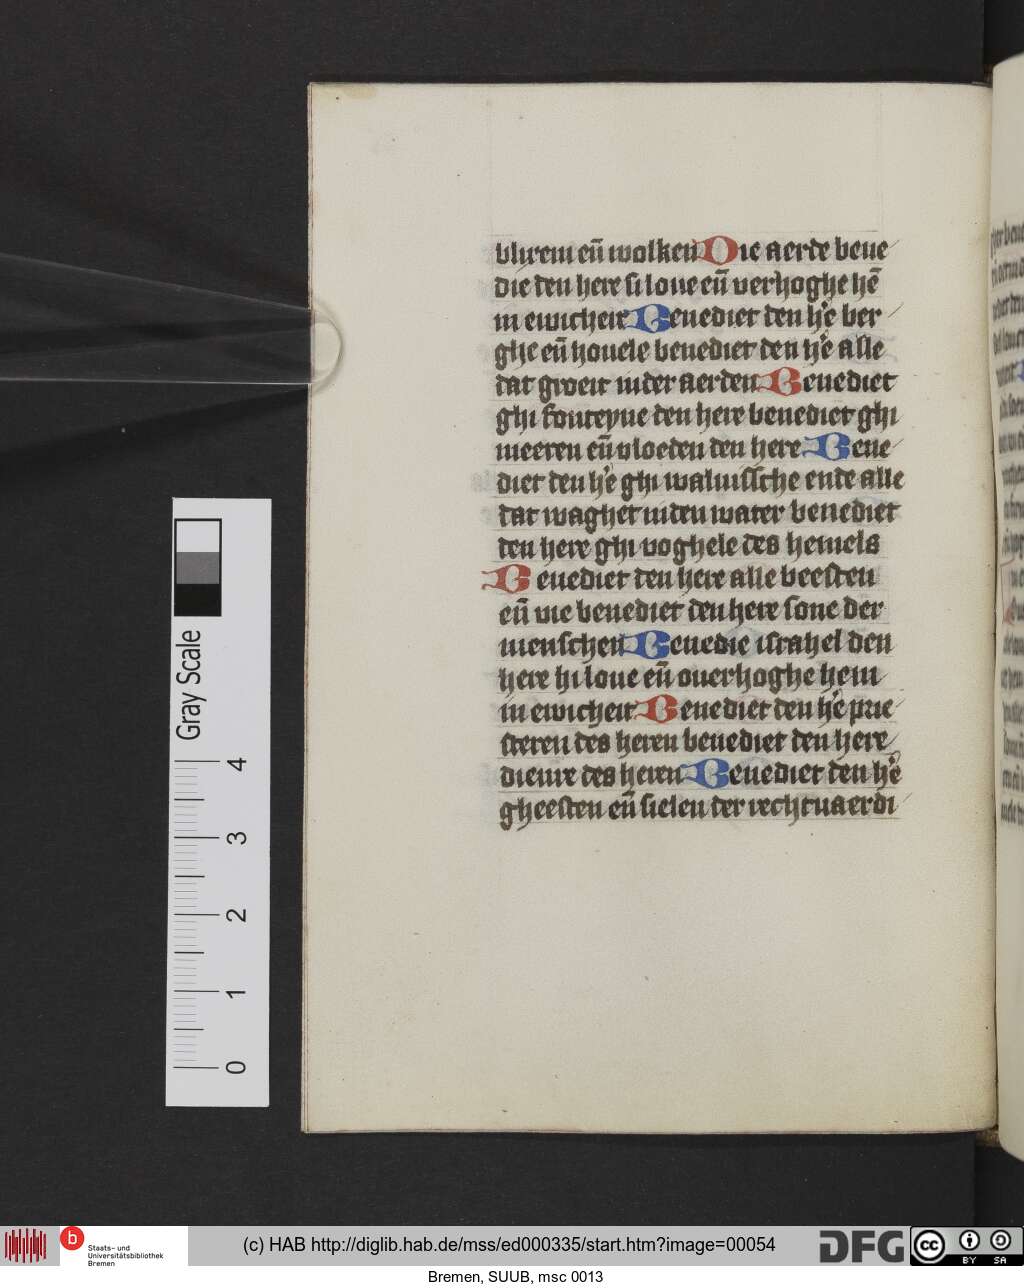 blixem eñ wolken Die aerde bene
die den here si loue eñ verhoghe hē
in ewicheit Benediet den h'e ber
ghe eñ houele benediet den h'e alle
dat groeit inder aerden Benediet
ghi fonteyne den here benediet ghi
meeren eñ vloeden den here Bene
diet den h'e ghi waluissche ende alle
dat waghet inden water benediet
den here ghi voghele des hemels
Benediet den here alle beesten
eñ vie benediet den here sone der
menschen Benedie israhel den
here hi loue eñ ouerhoghe hem
in ewicheit Benediet den h'e prie
steren des heren benediet den here
dienre des heren Benediet den h'e
gheesten eñ sielen der rechtuaerdi
Gray Scale
4
3
2
1
0
b
Staats- und
Universitätsbibliothek
Bremen
(c) HAB http://diglib.hab.de/mss/ed000335/start.htm?image=00054
DFG
cc
BY SA
Bremen, SUUB, msc 0013